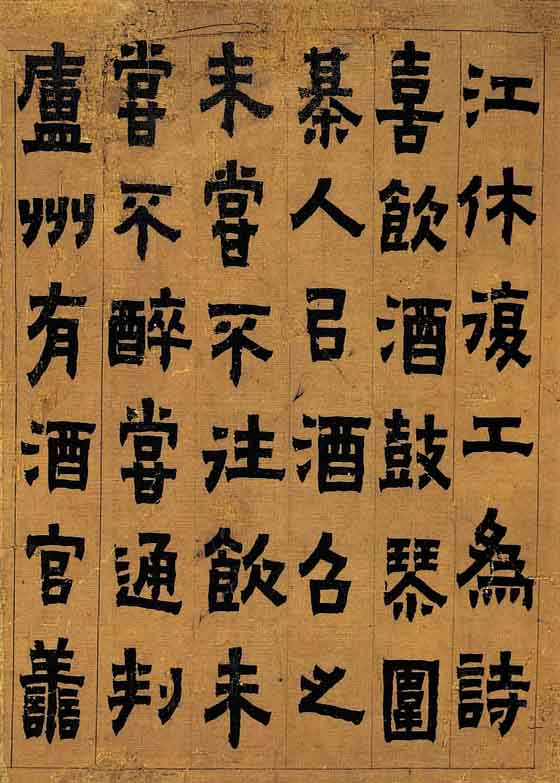 江休復工爲詩
喜飲酒鼓琴圍
棊人㠯酒召之
未嘗不往飲未
嘗不醉嘗通判
廬州有酒官譱